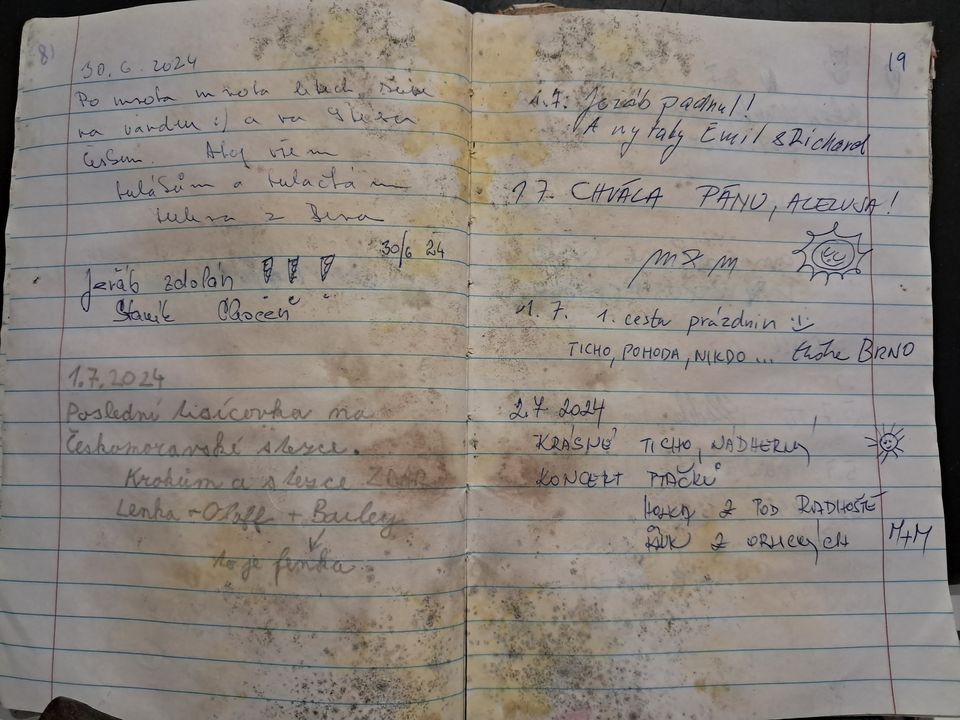 8
30.6.2024
Po mnoha mnoha letech, zase
na vandru :) a na
Češem. Ahoj všem
tulákům a
z Brna
30/6 24
Jeřáb zdolán
Staník Choceň
1.7.2024
Poslední lisícovka na
Českomoravské stezce.
Krokům a stezce ZDAR
Lenka + Olaff + Bailey
to je fenka
19
1.7: Jeřáb padnul!
A my taky Emil & Richard
1 7. CHVÁLA PÁNU, ALELUJA!
1. 7. 1. cesta prázdnin :-)
TICHO, POHODA, NIKDO... BRNO
2.7 2024
KRÁSNÉ TICHO, NÁDHERNÝ
KONCERT PTÁČKŮ
HOLKA Z POD RADHOŠTĚ
KLUK Z ORLICKÝCH M+M